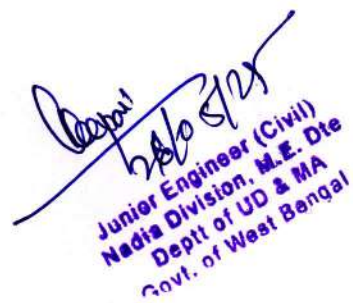 28/08/25
Junior Engineer (Civil)
Nadia Division, M.E. Dte
Deptt of UD & MA
Govt. of West Bengal